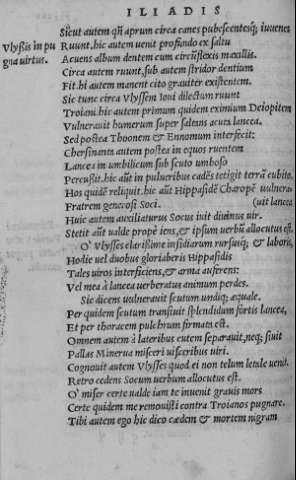 ILIADIS
Sicut autem qñ aprum circa canes pubescentesq; iuuenes
Vlyssis in pu
gna uirtus.
Ruunt. hic autem uenit profundo ex saltu
Acuens album dentem cum circūflexis maxillis.
Circa autem ruunt, sub autem stridor dentium
Fit. hi autem manent cito grauiter existentem.
Sic tunc circa Vlyssem Ioui dilectum ruunt
Troiani. hic autem primum quidem eximium Deiopitem
Vulnerauit humerum super saliens acuta lancea.
Sed postea Thoonem & Ennomum interfecit:
Chersinanta autem postea in equos ruentem
Lancea in umbilicum sub scuto umboso
Percussit. hic aūt in pulueribus cadēs tetigit terrā cubito.
Hos quidē reliquit. hic aūt Hippasidē Charopē uulnera-
Fratrem generosi Soci. (uit lancea
Huic autem auxiliaturus Socus iuit diuinus uir.
Stetit aūt ualde propè iens, & ipsum uerbū allocutus est.
O' Vlysses clarissime insidiarum rursusq; & laboris,
Hodie uel duobus gloriaberis Hippasidis
Tales uiros interficiens, & arma auferens:
Vel mea à lancea uerberatus animum perdes.
Sic dicens uulnerauit scutum undiq; æquale.
Per quidem scutum transiuit splendidum fortis lancea,
Et per thoracem pulchrum firmata est.
Omnem autem à lateribus cutem separauit, neq; siuit
Pallas Minerua misceri uisceribus uiri.
Cognouit autem Vlysses quod ei non telum letale uenit.
Retro cedens Socum uerbum allocutus est.
O' miser certe ualde iam te inuenit grauis mors
Certe quidem me remouisti contra Troianos pugnare.
Tibi autem ego hic dico cædem & mortem nigram